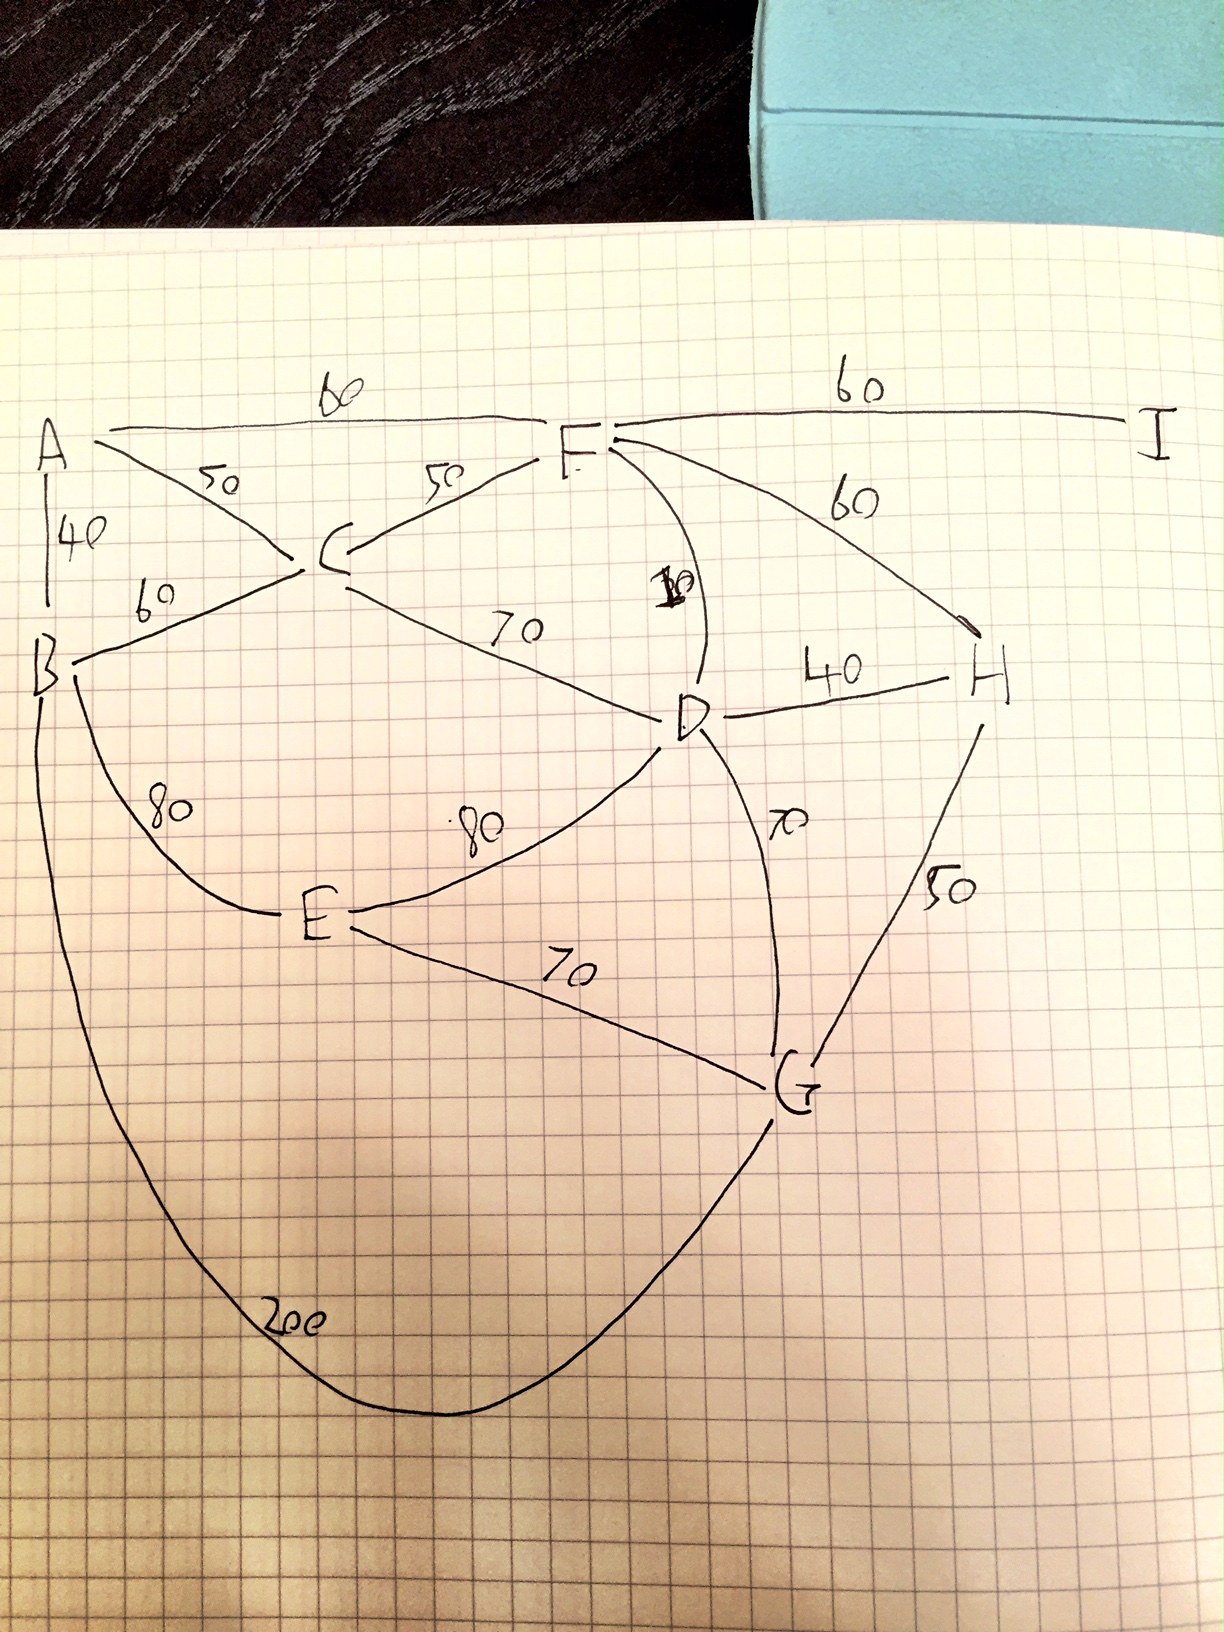 60
60
A
F
I
50
50
60
40
C
60
70
10
40
B
D
H
80
80
70
50
E
70
G
200